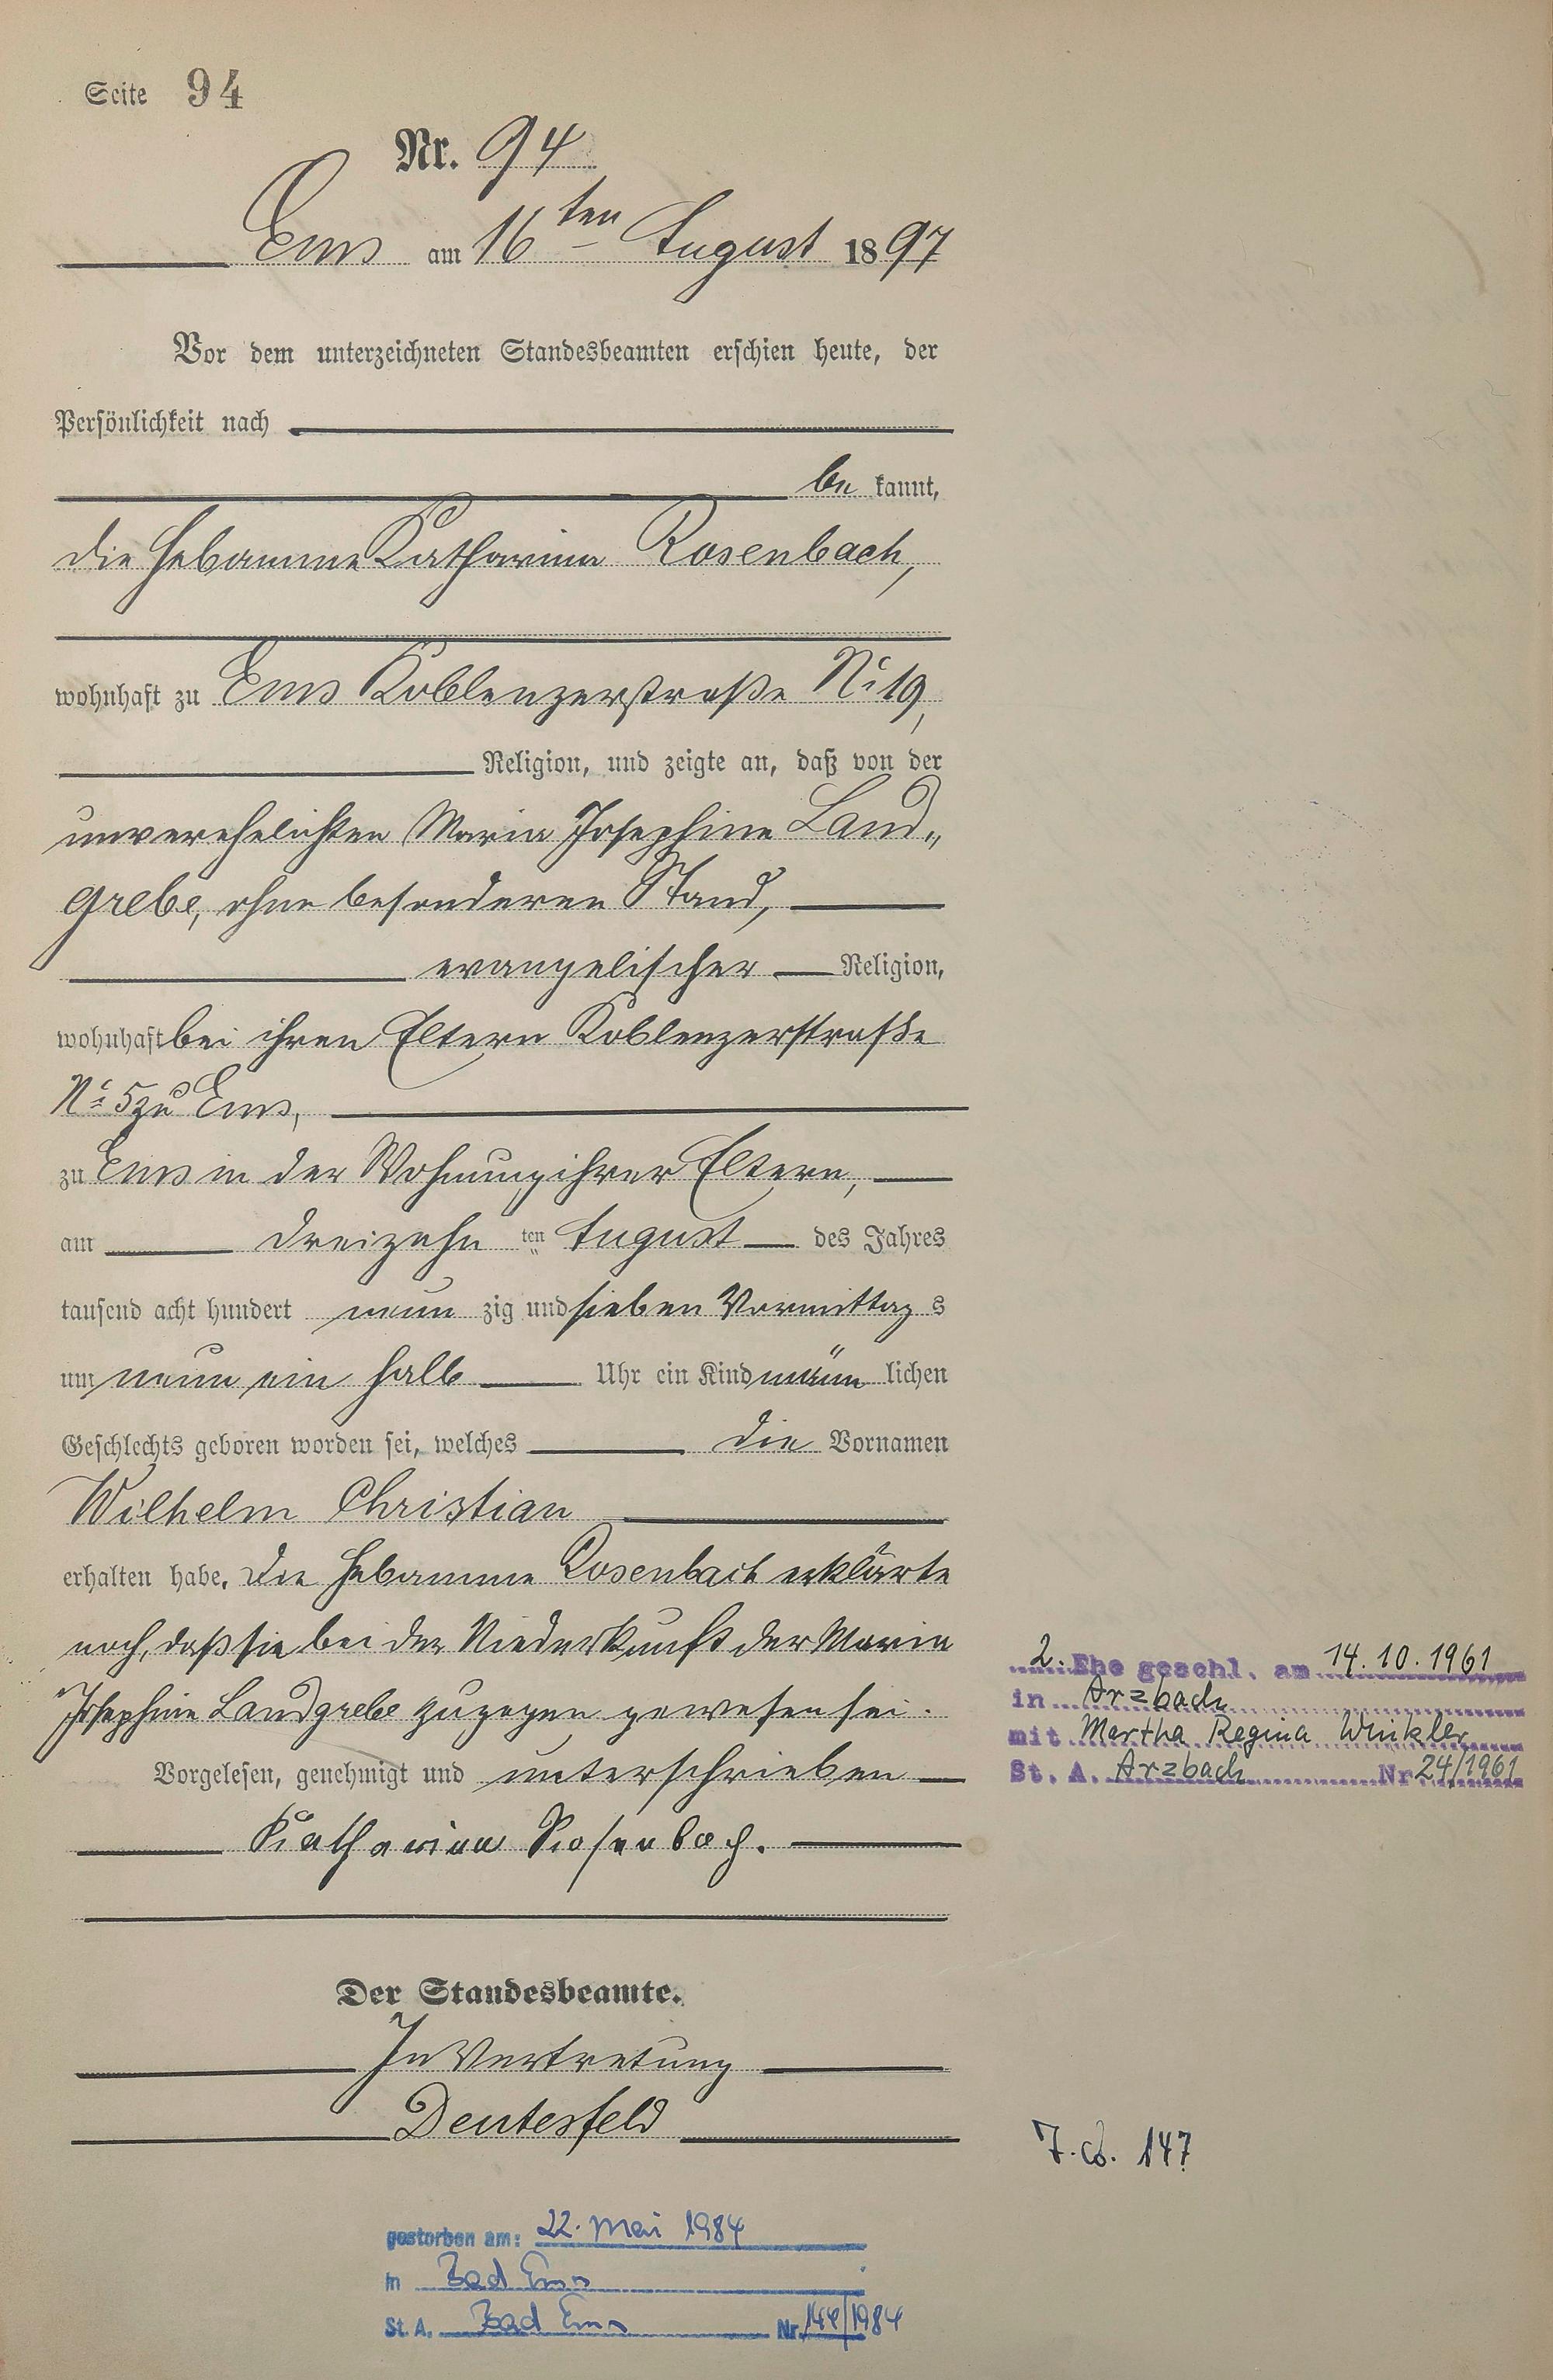 Seite 94
Nr. 94
Ems am 16ten August 1897
Vor dem unterzeichneten Standesbeamten erschien heute, der
Persönlichkeit nach
be kannt,
die Hebamme Katharina Rosenbach,
wohnhaft zu Ems Koblenzerstraße No 19,
Religion, und zeigte an, daß von der
unverehelichten Maria Josephine Land„
grebe, ohne besonderen Stand,
evangelischer Religion,
wohnhaft bei ihren Eltern Koblenzerstraße
No 5 zu Ems,
zu Ems in der Wohnung ihrer Eltern,
am dreizehn ten August des Jahres
tausend acht hundert neun zig und sieben Vormittag s
um neun ein halb Uhr ein Kind männ lichen
Geschlechts geboren worden sei, welches die Vornamen
Wilhelm Christian
erhalten habe. Die Hebamme Rosenbach erklärte
noch, daß sie bei der Niederkunft der Maria
Josephine Landgrebe zugegen gewesen sei.
Vorgelesen, genehmigt und unterschrieben
Katharina Rosenbach.
Der Standesbeamte.
In Vertretung
Deutesfeld
2. Ehe geschl. am 14.10.1961
in Arzbach
mit Martha Regina Winkler
St. A. Arzbach Nr 24/1961
147
gestorben am: 22. Mai 1984
in Bad Ems
St. A. Bad Ems Nr. 144/1984